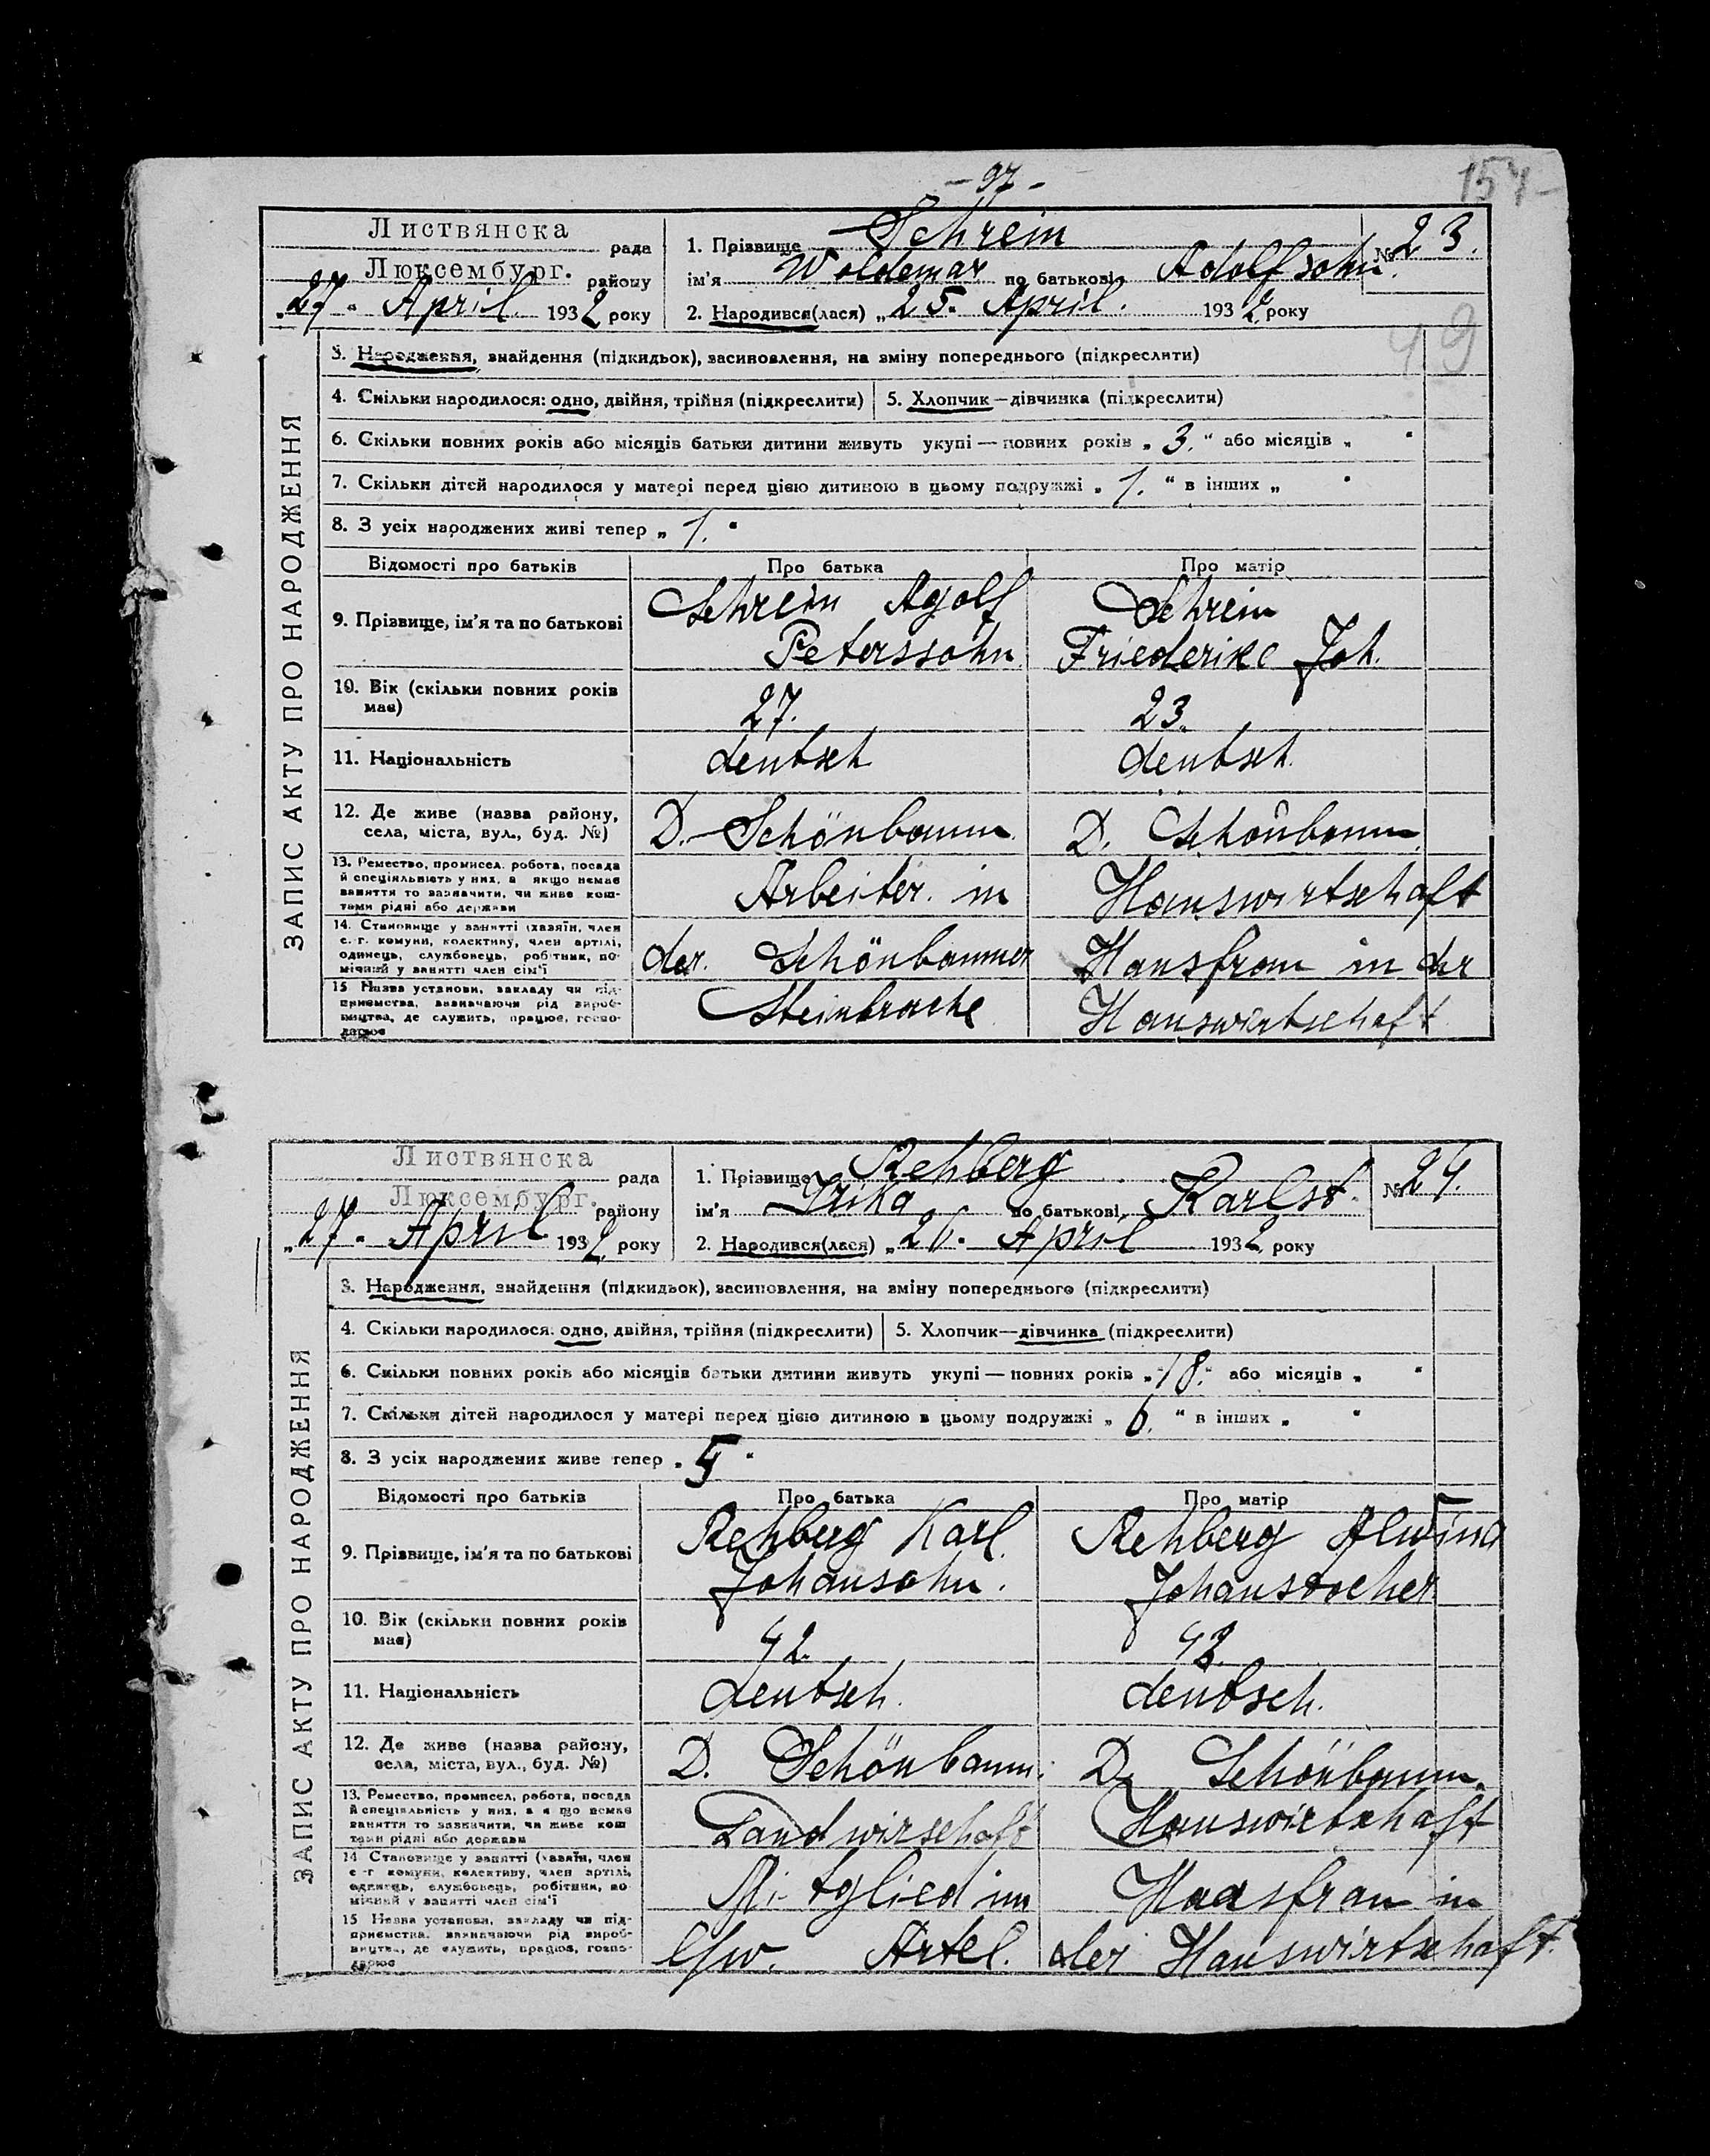 - 97 -
154-
Листвянска рада
Люксембург. району
„27" April 1932 року
1. Прізвище Schrein
№ 23.
ім'я Woldemar по батькові Adolfsohn.
2. Народився(лася) „25. April. 1932 року
49
ЗАПИС АКТУ ПРО НАРОДЖЕННЯ
3. Народження, знайдення (підкидьок), засиновлення, на зміну попереднього (підкреслити)
4. Скільки народилося: одно, двійня, трійня (підкреслити)
5. Хлопчик—дівчинка (підкреслити)
6. Скільки повних років або місяців батьки дитини живуть укупі — повних років „3." або місяців „ "
7. Скільки дітей народилося у матері перед цією дитиною в цьому подружжі „1." в інших „ "
8. З усіх народжених живі тепер „1."
Відомості про батьків
Про батька
Про матір
9. Прізвище, ім'я та по батькові
Schrein Agolf
Peterssohn
Schrein
Friederike Joh.
10. Вік (скільки повних років
має)
27.
23.
11. Національність
deutsch
deutsch.
12. Де живе (назва району,
села, міста, вул., буд. №)
D. Schönbaum.
D. Schönbaum.
13. Ремество, промисел, робота, посада
й спеціяльність у них, а якщо немає
заняття то зазначити, чи живе кош-
тами рідні або держави
Arbeiter. in
Hauswirtschaft
14. Становище у занятті (хазяїн, член
с.-г. комуни, колективу, член артілі,
одинець, службовець, робітник, по-
мічний у занятті член сім'ї
der. Schönbaumer
Hausfrau in der
15 Назва установи, закладу чи під-
приємства, визначаючи рід вироб-
ництва, де служить, працює, госпо-
дарює
Steinbruche
Hauswirtschaft
Листвянска рада
Люксембург. району
„27" April 1932 року
1. Прізвище Rehberg
№ 24.
ім'я Irika по батькові Karlst.
2. Народився(лася) „26. April 1932 року
ЗАПИС АКТУ ПРО НАРОДЖЕННЯ
3. Народження, знайдення (підкидьок), засиновлення, на зміну попереднього (підкреслити)
4. Скільки народилося: одно, двійня, трійня (підкреслити)
5. Хлопчик—дівчинка (підкреслити)
6. Скільки повних років або місяців батьки дитини живуть укупі — повних років „18." або місяців „ "
7. Скільки дітей народилося у матері перед цією дитиною в цьому подружжі „6." в інших „ "
8. З усіх народжених живе тепер „5"
Відомості про батьків
Про батька
Про матір
9. Прізвище, ім'я та по батькові
Rehberg Karl.
Johansohn.
Rehberg Alwina
Johanstocher
10. Вік (скільки повних років
має)
42.
11. Національність
deutsch.
deutsch.
12. Де живе (назва району,
села, міста, вул., буд. №)
D. Schönbaum.
D. Schönbaum.
13. Ремество, промисел, робота, посада
й спеціяльність у них, а якщо немає
заняття то зазначити, чи живе кош
тами рідні або держави
Landwirschaft
Hauswirtschaft
14 Становище у занятті (хазяїн, член
с-г комуни, колективу, член артілі,
одинець, службовець, робітник, по
мічний у занятті член сім'ї
Mitglied im
Hausfrau in
15 Назва установи, закладу чи під-
приємства, визначаючи рід вироб-
ництва, де служить, працює, госпо-
дарює
Artel.
der Hauswirtschaft.